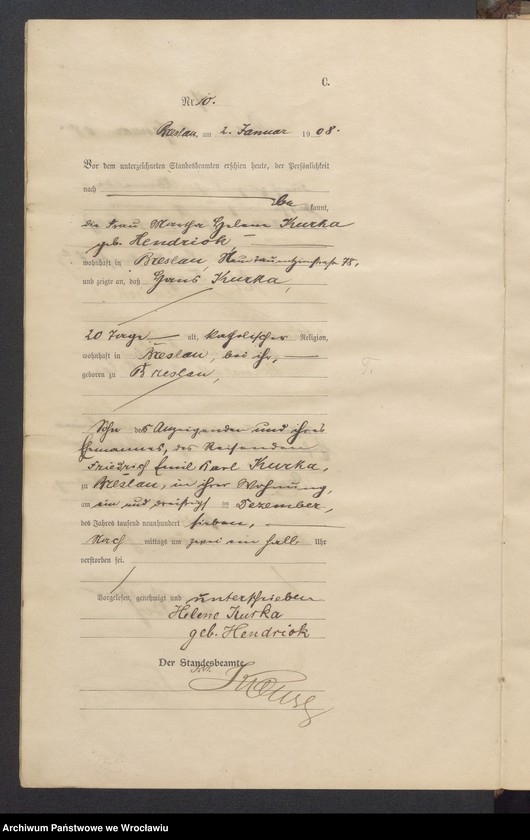 C.
Nr. 10.
Breslau, am 2. Januar 1908.
Vor dem unterzeichneten Standesbeamten erschien heute, der Persönlichkeit
nach be kannt,
die Frau Martha Helene Kurka
geb. Hendriok,
wohnhaft in Breslau, Neudauentzienstraße 78,
und zeigte an, daß Hans Kurka,
20 Tage alt, katholischer Religion,
wohnhaft in Breslau, bei ihr,
geboren zu Breslau,
Sohn des Anzeigenden und ihres
Ehemannes, des Reisenden
Friedrich Emil Karl Kurka,
zu Breslau, in ihrer Wohnung,
am ein und dreißigsten Dezember,
des Jahres tausend neunhundert sieben,
Nach mittags um zwei ein halb Uhr
verstorben sei.
Vorgelesen, genehmigt und unterschrieben
Helene Kurka
geb. Hendriok
Der Standesbeamte
Archiwum Państwowe we Wrocławiu